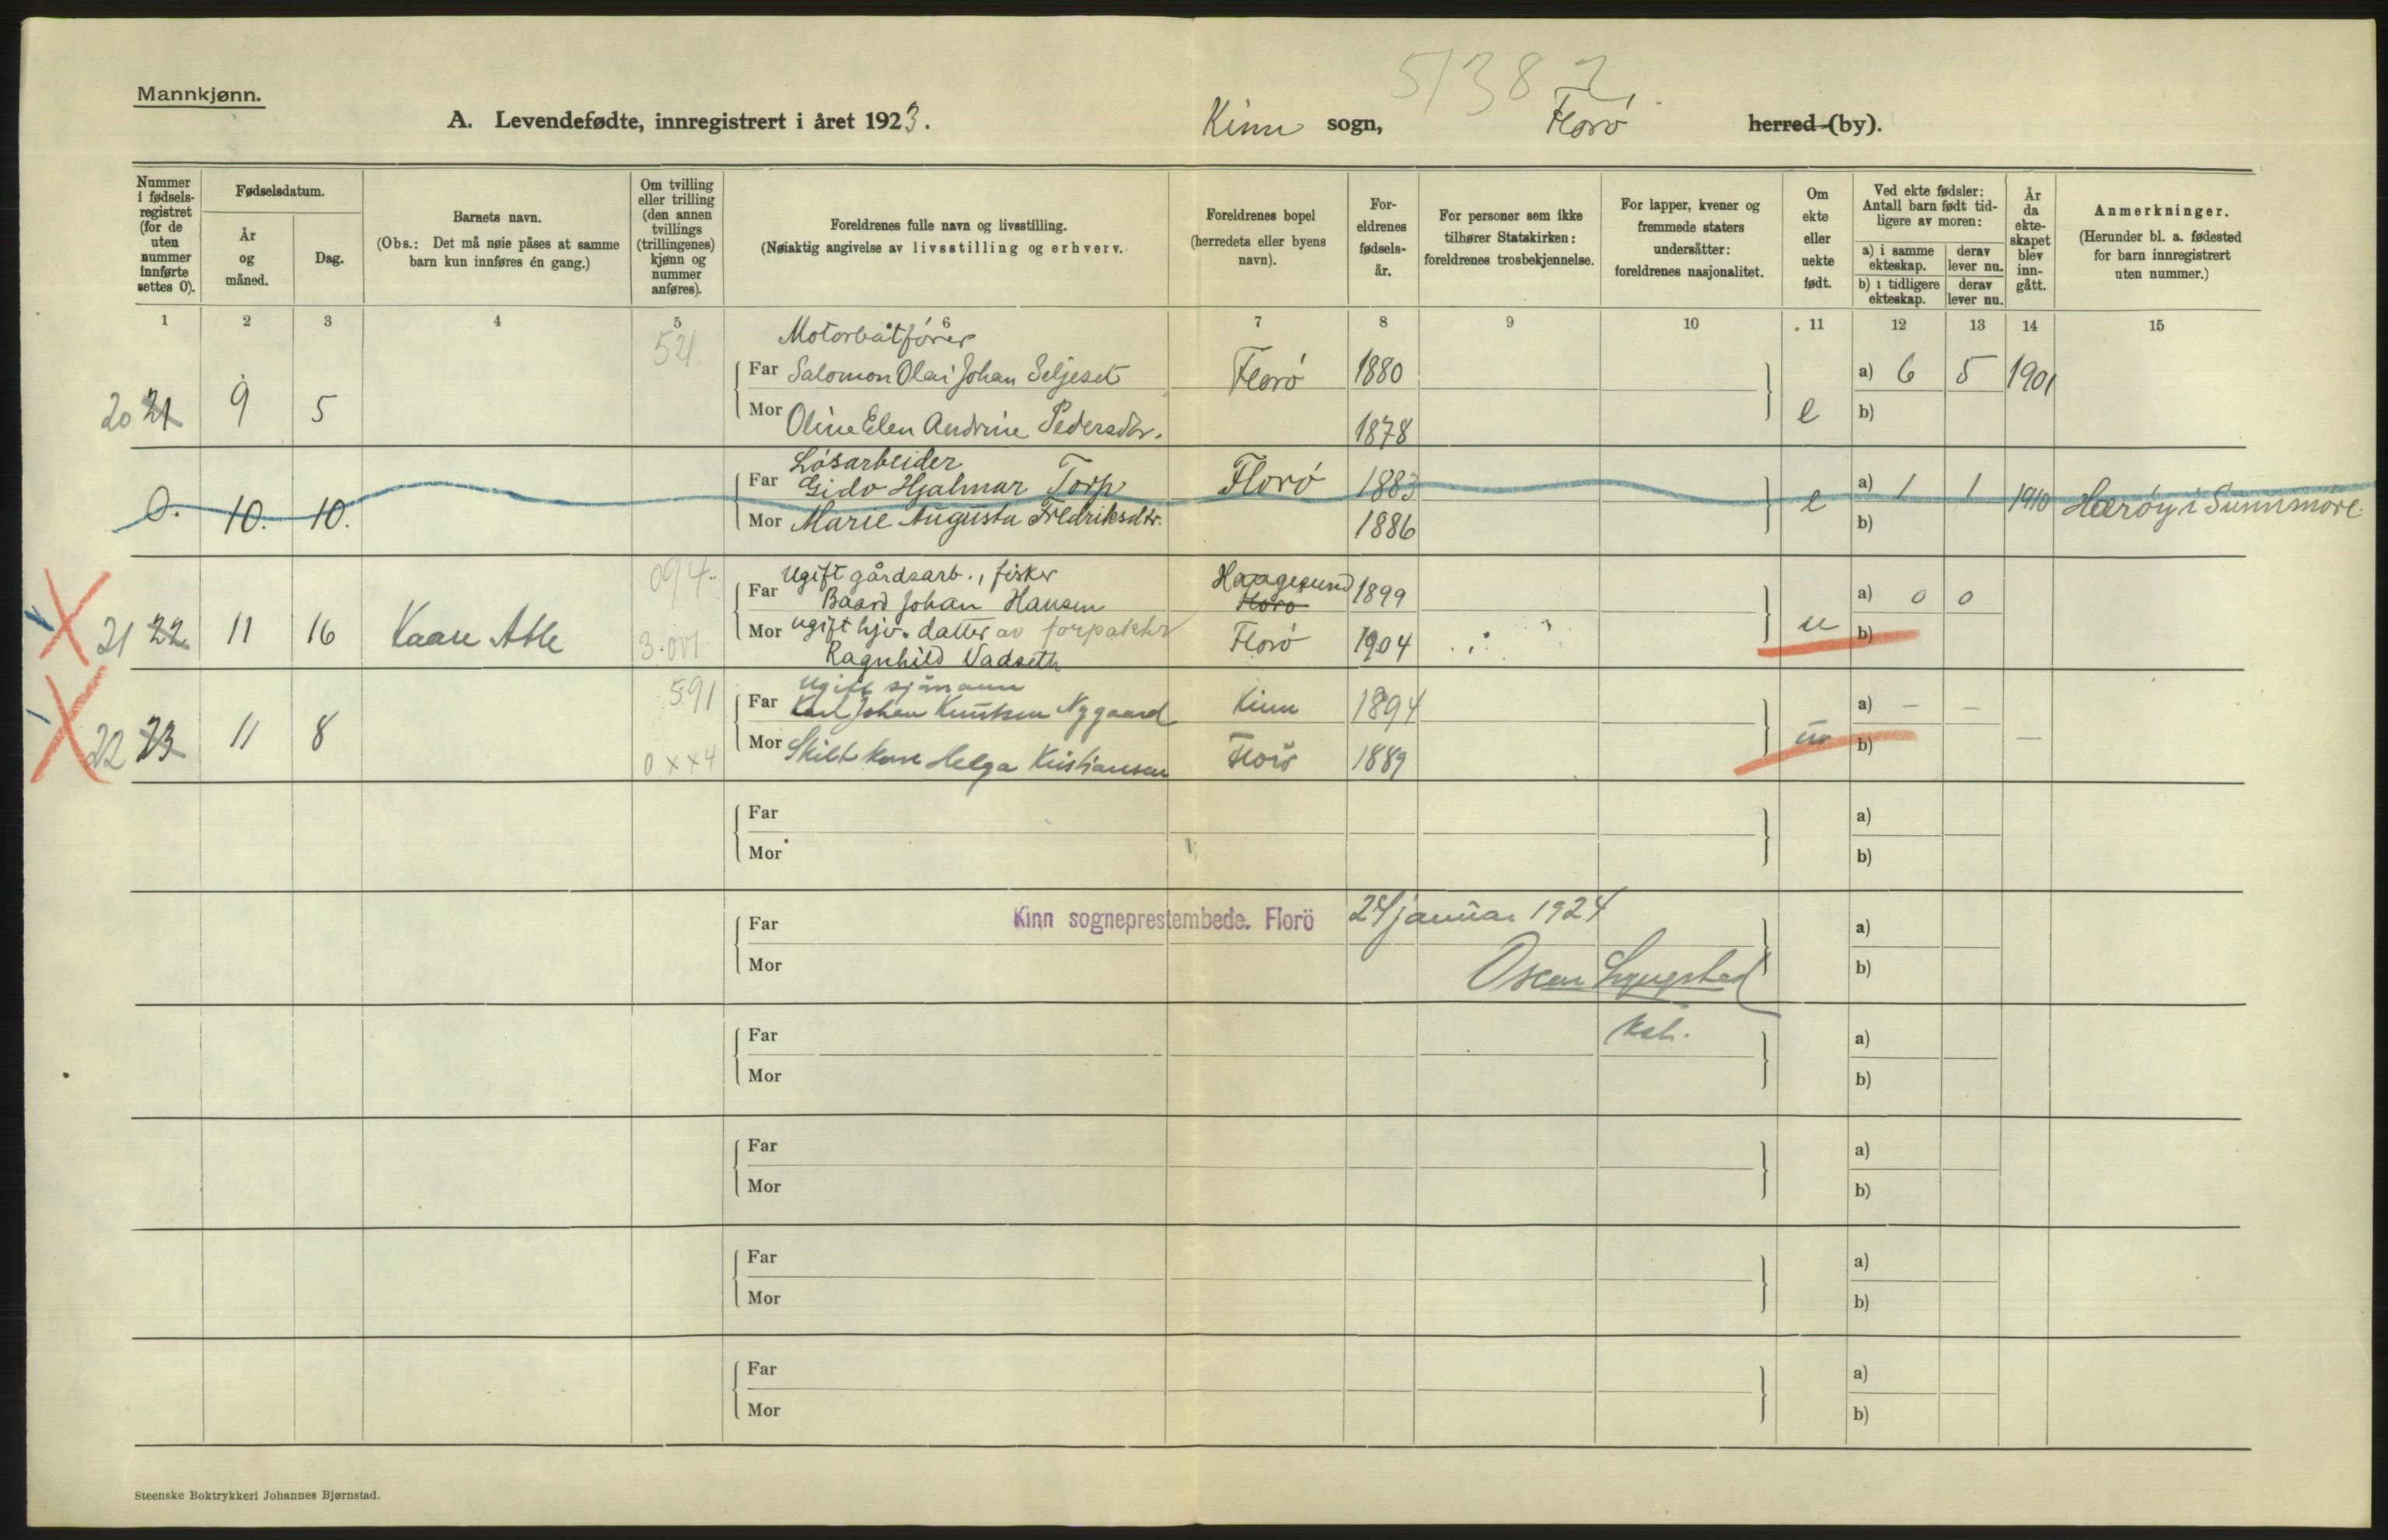 51382
Mannkjønn.
A. Levendefødte, innregistrert i året 1923.
Kinn sogn, Florø herred (by).
Nummer i fødselsregistret (for de uten nummer innførte settes 0).
Fødselsdatum.
År og måned.
Dag.
Barnets navn.
(Obs.: Det må nøie påses at samme barn kun innføres én gang.)
Om tvilling eller trilling (den annen tvillings (trillingenes) kjønn og nummer anføres).
Foreldrenes fulle navn og livsstilling.
(Nøiaktig angivelse av livsstilling og erhverv.
Foreldrenes bopel (herredets eller byens navn).
Foreldrenes fødselsår.
For personer som ikke tilhører Statskirken: foreldrenes trosbekjennelse.
For lapper, kvener og fremmede staters undersåtter: foreldrenes nasjonalitet.
Om ekte eller uekte født.
Ved ekte fødsler: Antall barn født tidligere av moren:
a) i samme ekteskap.
derav lever nu.
b) i tidligere ekteskap.
derav lever nu.
År da ekteskapet blev inngått.
Anmerkninger.
(Herunder bl. a. fødested for barn innregistrert uten nummer.)
1 2 3 4 5 6 7 8 9 10 11 12 13 14 15
54 Motorbåtfører
Far Salomon Olai Johan Seljeset Florø 1880 a) 6 5 1901
20 21 9 5
Mor Oline Elen Andrine Pedersdtr. 1878 e b)
Løsarbeider
Far Gido Hjalmar Torp Florø 1883 a) 1 1
0. 10. 10. e 1910 Herøy i Sunnmøre.
Mor Marie Augusta Fredriksdtr. 1886 b)
094. Ugift gårdsarb., fisker Haugesund
Far Baard Johan Hansen Florø 1899 a) 0 0
21 22 11 16 Kaare Atle 3.001 u
Mor ugift hjv. datter av forpakter Florø 1904 b)
Ragnhild Vadseth
591 Ugift sjømann
Far Karl Johan Knutsen Nygaard Kinn 1894 a) – –
22 23 11 8 u b) —
Mor Skilt kone Helga Kristiansen Florø 1889
0 x x 4
Far a)
Mor b)
Kinn sogneprestembede. Florö 24 januar 1924
Far a)
Mor b)
Oscar Lyngstad
Far a)
Mor b)
Far a)
Mor b)
Far a)
Mor b)
Far a)
Mor b)
Steenske Boktrykkeri Johannes Bjørnstad.